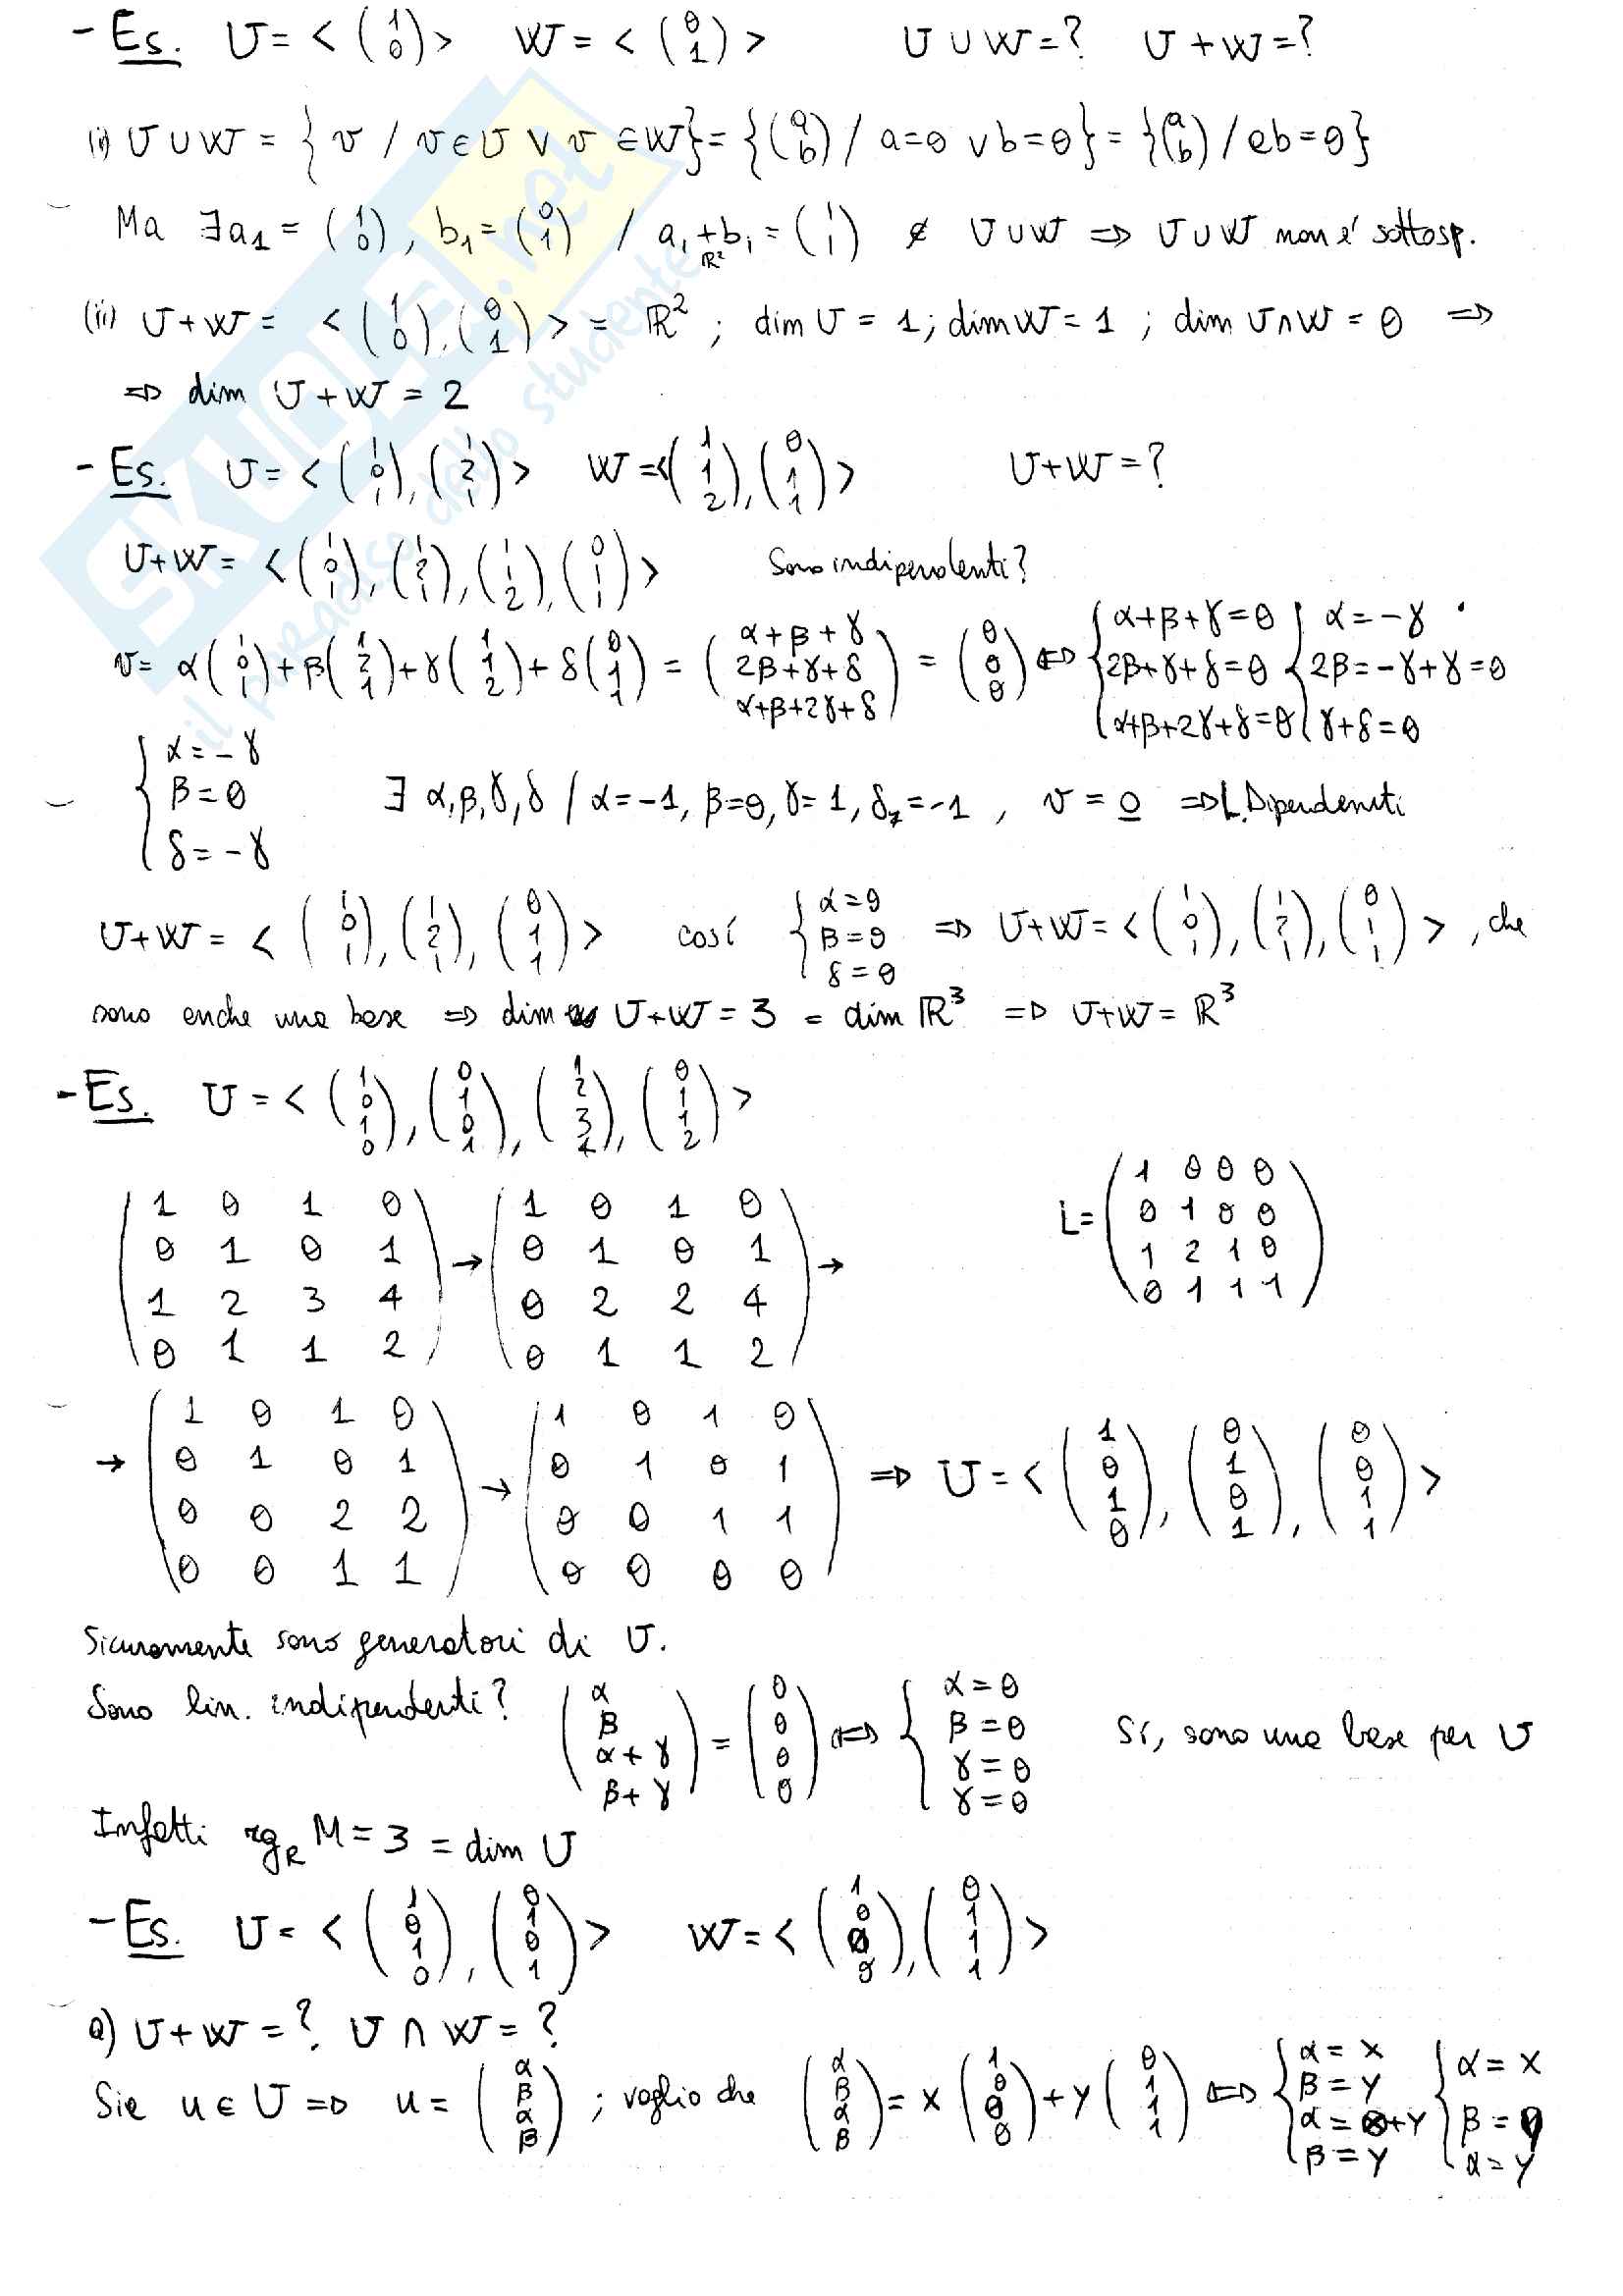 - Es. U = < (1 0) > W = < (0 1) > U ∪ W = ? U + W = ?
(i) U ∪ W = { v / v ∈ U ∨ v ∈ W } = { (a b) / a = 0 ∨ b = 0 } = { (a b) / ab = 0 }
Ma ∃ a₁ = (1 0), b₁ = (0 1) / a₁ +ℝ² b₁ = (1 1) ∉ U ∪ W ⇒ U ∪ W non è sottosp.
(ii) U + W = < (1 0), (0 1) > = ℝ² ; dim U = 1 ; dim W = 1 ; dim U ∩ W = 0 ⇒
⇒ dim U + W = 2
- Es. U = < (1 0 1), (1 2 1) > W = < (1 1 2), (0 1 1) > U + W = ?
U + W = < (1 0 1), (1 2 1), (1 1 2), (0 1 1) > Sono indipendenti?
v = α (1 0 1) + β (1 2 1) + γ (1 1 2) + δ (0 1 1) = (α+β+γ 2β+γ+δ α+β+2γ+δ) = (0 0 0) ⇔ { α+β+γ=0 2β+γ+δ=0 α+β+2γ+δ=0 { α=-γ 2β=-γ+γ=0 γ+δ=0
{ α=-γ β=0 δ=-γ ∃ α,β,γ,δ / α=-1, β=0, γ=1, δ=-1, v = 0 ⇒ L. Dipendenti
U + W = < (1 0 1), (1 2 1), (0 1 1) > così { α=0 β=0 δ=0 ⇒ U + W = < (1 0 1), (1 2 1), (0 1 1) >, che
sono anche una base ⇒ dim U + W = 3 = dim ℝ³ ⇒ U + W = ℝ³
- Es. U = < (1 0 1 0), (0 1 0 1), (1 2 3 4), (0 1 1 2) >
(1 0 1 0
0 1 0 1
1 2 3 4
0 1 1 2) → (1 0 1 0
0 1 0 1
0 2 2 4
0 1 1 2) →
L = (1 0 0 0
0 1 0 0
1 2 1 0
0 1 1 1)
→ (1 0 1 0
0 1 0 1
0 0 2 2
0 0 1 1) → (1 0 1 0
0 1 0 1
0 0 1 1
0 0 0 0) ⇒ U = < (1 0 1 0), (0 1 0 1), (0 0 1 1) >
Sicuramente sono generatori di U.
Sono lin. indipendenti? (α β α+γ β+γ) = (0 0 0 0) ⇔ { α=0 β=0 γ=0 γ=0 Sí, sono una base per U
Infatti rg_R M = 3 = dim U
- Es. U = < (1 0 1 0), (0 1 0 1) > W = < (1 0 0 0), (0 1 1 1) >
a) U + W = ? U ∩ W = ?
Sia u ∈ U ⇒ u = (α β α β) ; voglio che (α β α β) = x (1 0 0 0) + y (0 1 1 1) ⇔ { α = x β = y α = +y β = y { α = x β = α = y
SKUOLA.net
il paradiso dello studente